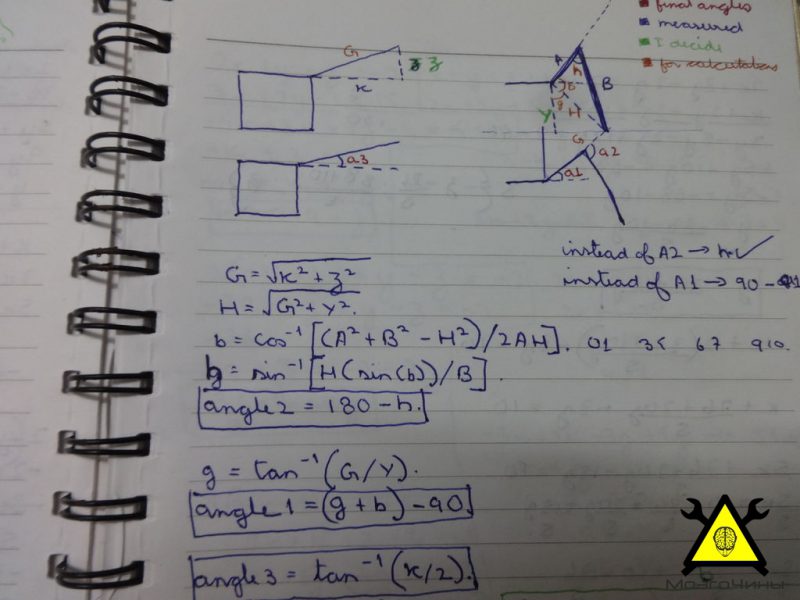 final angles
measured
I decide
for calculations
G
z
x
A
h
b
B
g
Y
H
G
a2
a1
a3
instead of A2 → h ✓
instead of A1 → 90 - A1
G = √x² + z²
H = √G² + Y².
b = cos⁻¹ [(A² + B² - H²)/2AH]. 01 35 67 910.
h = sin⁻¹ [H(sin(b))/B].
angle 2 = 180 - h.
g = tan⁻¹ (G/Y).
angle 1 = (g + b) - 90.
angle 3 = tan⁻¹ (x/2).
МозгоЧины